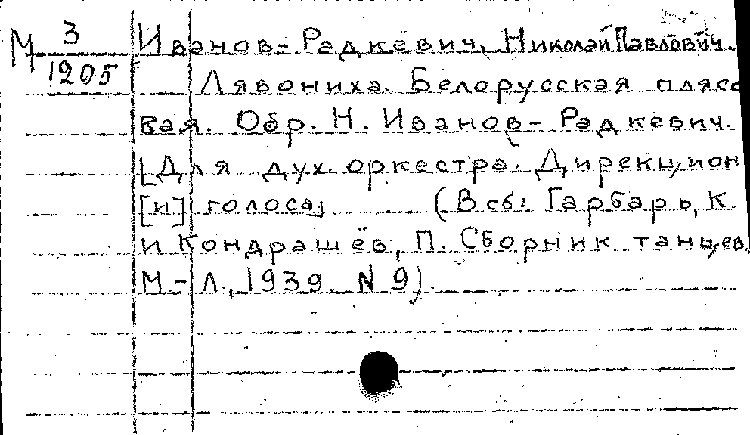 М 3/1205
Иванов-Радкевич, Николай Павлович.
Лявониха. Белорусская пляс
вая. Обр. Н. Иванов-Радкевич.
[Для дух. оркестра. Дирекцион
[и] голоса] (В сб: Гарбарь, К.
и Кондрашёв, П. Сборник танцев.
М-Л, 1939 N 9)